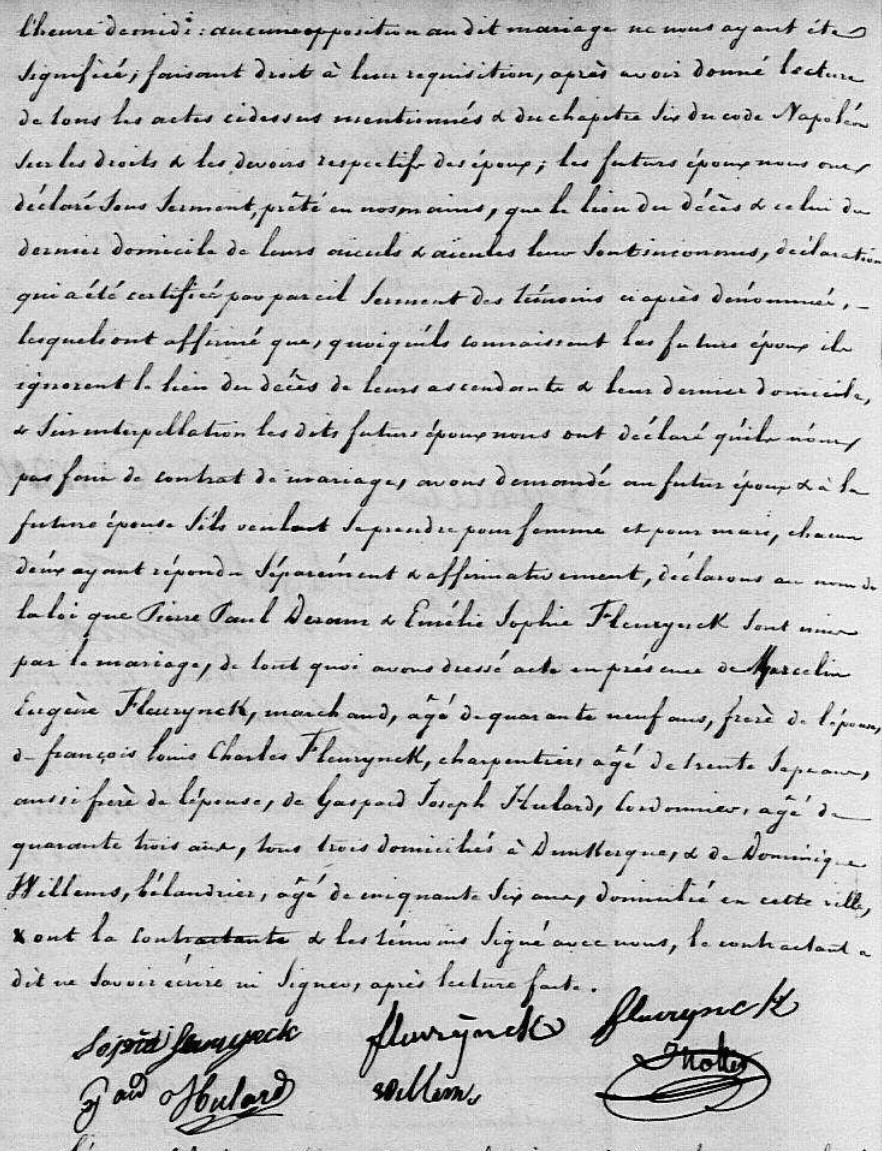 l'heure de midi: aucune opposition au dit mariage ne nous ayant été
signifiée; faisant droit à leur requisition, après avoir donné lecture
de tous les actes cidessus mentionnés & du chapitre six du code Napoléon
sur les droits & les devoirs respectifs des époux; les futurs époux nous ont
déclaré sous serment, prêté en nos mains, que le lieu du décès & celui du
dernier domicile de leurs aieuls & aieules leur sont inconnus, déclaration
qui a été certifiée par pareil serment des témoins ciaprès dénommés,
lesquels ont affirmé que, quoiqu'ils connaissent les futurs époux ils
ignorent le lieu du décès de leurs ascendants & leur dernier domicile,
& sur interpellation les dits futurs époux nous ont déclaré qu'ils n'ont
pas fait de contrat de mariage, avons demandé au futur époux & à la
future épouse s'ils veulent se prendre pour femme et pour mari, chacun
d'eux ayant répondu séparément & affirmativement, déclarons au nom de
la loi que Pierre Paul & Emélie Sophie Fleurynck sont unis
par le mariage, de tout quoi avons dressé acte en présence de Marcelin
Eugène Fleurynck, marchand, agé de quarante neuf ans, frère de l'épouse,
de françois louis Charles Fleurynck, charpentier, agé de trente sept ans,
aussi frère de l'épouse, de Gaspard Joseph Hulard, Cordonnier, agé de
quarante trois ans, tous trois domiciliés à Dunkerque, & de Dominique
Willems, bélandrier, agé de cinquante six ans, domicilié en cette ville,
ont la contractante & les témoins signé avec nous, le contractant a
dit ne savoir écrire ni signer, après lecture faite.
fleurynck fleurynck
Hulard Willems